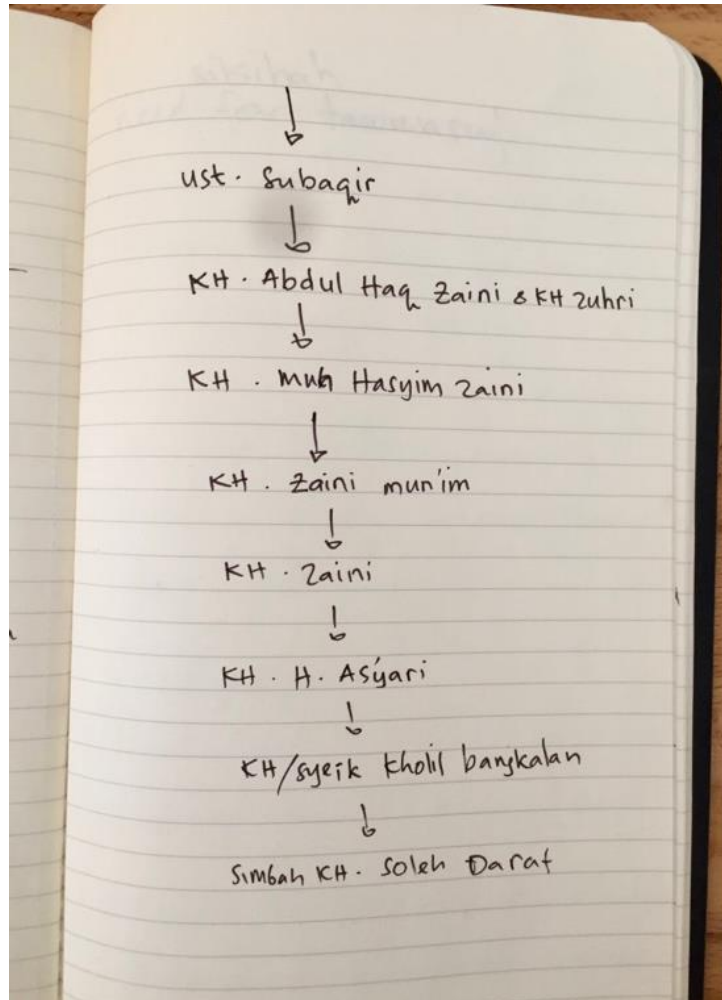 Ust. Subaqir
KH. Abdul Haq Zaini & KH Zuhri
KH. Muh Hasyim Zaini
KH. Zaini mun'im
KH. Zaini
KH. H. Asy'ari
KH/syeik Kholil bangkalan
Simbah KH. Soleh Darat